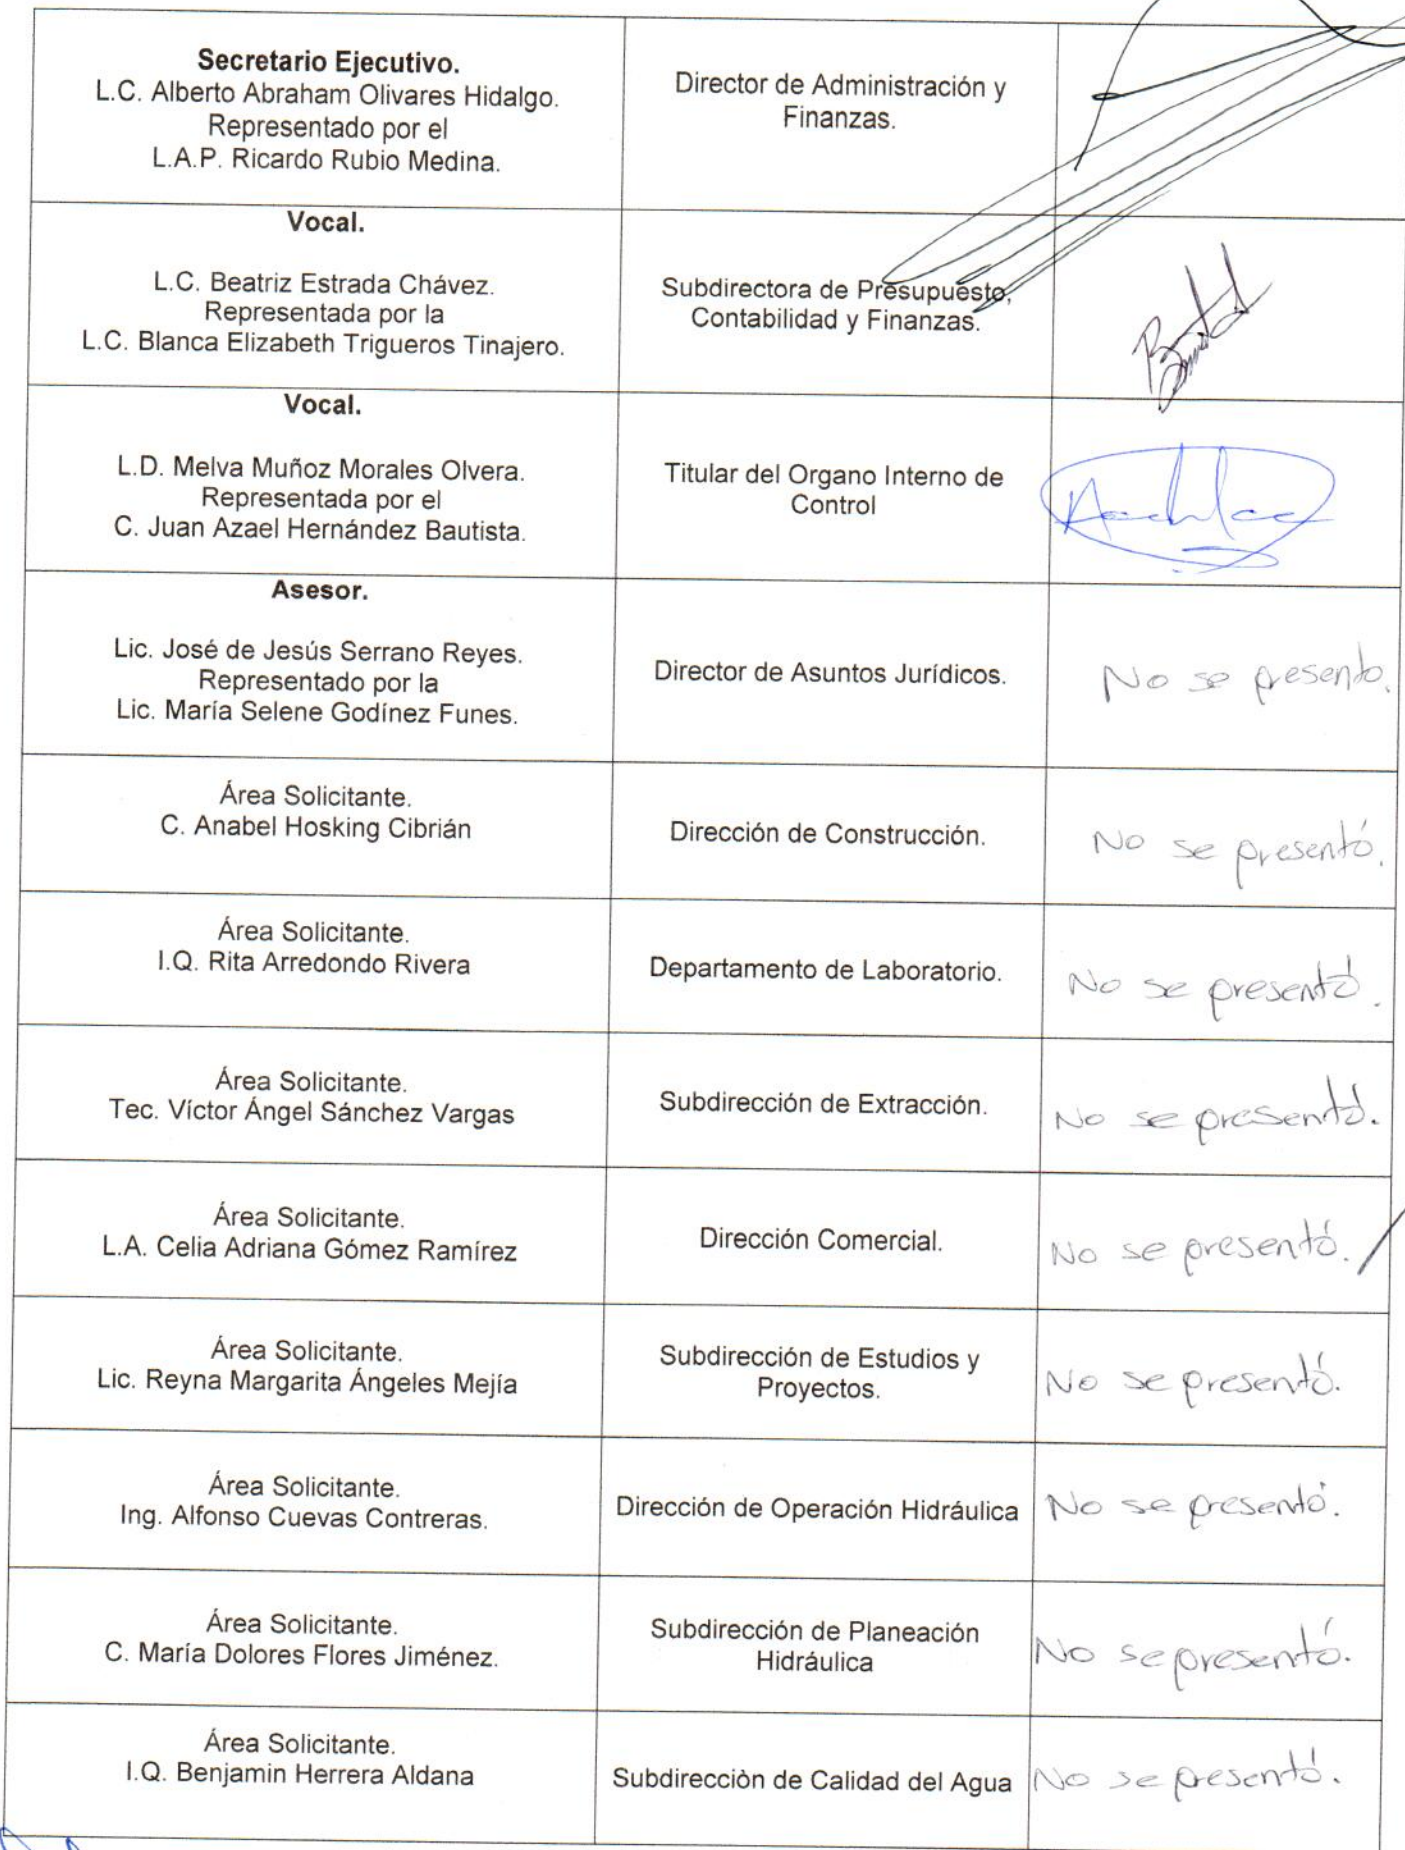 Secretario Ejecutivo.
L.C. Alberto Abraham Olivares Hidalgo.
Representado por el
L.A.P. Ricardo Rubio Medina.
Director de Administración y
Finanzas.
Vocal.
L.C. Beatriz Estrada Chávez.
Representada por la
L.C. Blanca Elizabeth Trigueros Tinajero.
Subdirectora de Presupuesto,
Contabilidad y Finanzas.
Vocal.
L.D. Melva Muñoz Morales Olvera.
Representada por el
C. Juan Azael Hernández Bautista.
Titular del Organo Interno de
Control
Asesor.
Lic. José de Jesús Serrano Reyes.
Representado por la
Lic. María Selene Godínez Funes.
Director de Asuntos Jurídicos.
No se presento.
Área Solicitante.
C. Anabel Hosking Cibrián
Dirección de Construcción.
No se presentó.
Área Solicitante.
I.Q. Rita Arredondo Rivera
Departamento de Laboratorio.
No se presentó.
Área Solicitante.
Tec. Víctor Ángel Sánchez Vargas
Subdirección de Extracción.
No se presentó.
Área Solicitante.
L.A. Celia Adriana Gómez Ramírez
Dirección Comercial.
No se presentó.
Área Solicitante.
Lic. Reyna Margarita Ángeles Mejía
Subdirección de Estudios y
Proyectos.
No se presentó.
Área Solicitante.
Ing. Alfonso Cuevas Contreras.
Dirección de Operación Hidráulica
No se presentó.
Área Solicitante.
C. María Dolores Flores Jiménez.
Subdirección de Planeación
Hidráulica
No se presentó.
Área Solicitante.
I.Q. Benjamin Herrera Aldana
Subdirecciòn de Calidad del Agua
No se presentó.